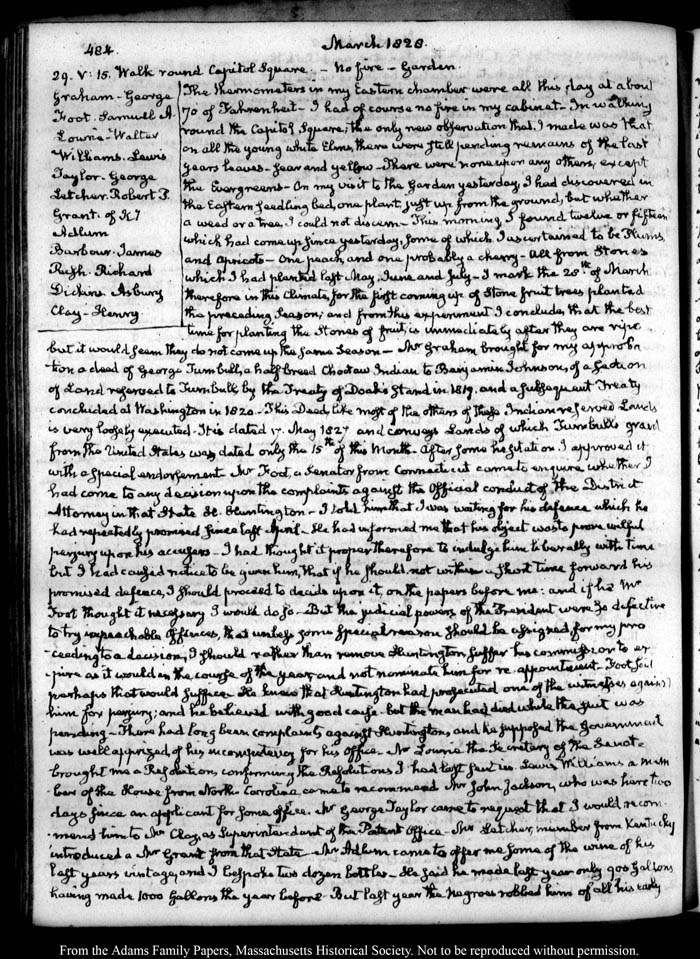 484.
March 1828.
29. V: 15. Walk round Capitol Square. - No fire - Garden.
Graham - George
Foot. Samuel A.
Lowrie - Walter
Williams. Lewis
Taylor - George
Letcher. Robert P.
Grant. of Ky
Adlum
Barbour. James
Rush. Richard
Dickins. Asbury
Clay - Henry
The thermometers in my Eastern chamber were all this day at about
70 of Fahrenheit - I had of course no fire in my cabinet - In walking
round the Capitol Square, the only new observation that I made was that
on all the young white Elms, there were still pending remains of the last
years leaves - sear and yellow - There were none upon any others, except
the Evergreens - On my visit to the Garden yesterday, I had discovered in
the Eastern seedling bed, one plant, just up from the ground; but whether
a weed or a tree, I could not discern - This morning, I found twelve or fifteen
which had come up since yesterday, some of which I ascertained to be Plums,
and Apricots - One peach, and one probably a cherry - All from Stones
which I had planted last May, June and July - I mark the 28th. of March
therefore in this Climate, for the first coming up of Stone fruit trees planted
the preceding Season; and from this experiment I conclude, that the best
time for planting the Stones of fruit, is immediately after they are ripe.
but it would seem they do not come up the same Season - Mr Graham brought for my approba-
tion a deed of George Turnbull, a half breed Choctaw Indian to Benjamin Johnson, of a Section
of Land reserved to Turnbull, by the Treaty of Doak's Stand in 1819. and a subsequent Treaty
concluded at Washington in 1820. - This Deed, like most of the others of these Indian reserved Lands
is very loosely executed. It is dated 17. May 1827 and conveys Lands of which Turnbull's grant
from the United States was dated only the 15th of this Month - After some hesitation I approved it
with a special endorsement - Mr Foot, a Senator from Connecticut came to enquire whether I
had come to any decision upon the complaints against the Official conduct of the District
Attorney in that State Huntington - I told him that I was waiting for his defence which he
had repeatedly promised since last April - He had informed me that his object was to prove wilful
perjury upon his accusers - I had thought it proper therefore to indulge him liberally with time
but I had caused notice to be given him, that if he should not within a short time forward his
promised defence, I should proceed to decide upon it, on the papers before me: and if he Mr
Foot thought it necessary I would do so - But the judicial powers of the President were so defective
to try impeachable Offences, that unless some special reason should be assigned, for my pro
ceeding to a decision, I should rather than remove Huntington suffer his commission to ex
pire as it would in the course of the year, and not nominate him for re-appointment. Foot said
perhaps that would suffice - He knew that Huntington had prosecuted one of the witnesses against
him for perjury; and he believed with good cause. but the man had died while the suit was
pending - There had long been complaints against Huntington, and he supposed the Government
was well apprized of his incompetency for his Office - Mr Lowrie the Secretary of the Senate
brought me a Resolution, confirming the Resolutions I had last sent in. Lewis Williams a mem
ber of the House from North Carolina, came to recommend Mr John Jackson, who was here two
days since an applicant for some office. Mr George Taylor came to request that I would recom-
mend him to Mr Clay, as Superintendent of the Patent Office - Mr Letcher, member from Kentucky
introduced a Mr Grant from that State - Mr Adlum came to offer me some of the wine of his
last years vintage, and I bespoke two dozen bottles - He said he made last year only 900 Gallons
having made 1000 Gallons the year before. But last year the Negroes robbed him of all his early
From the Adams Family Papers, Massachusetts Historical Society. Not to be reproduced without permission.